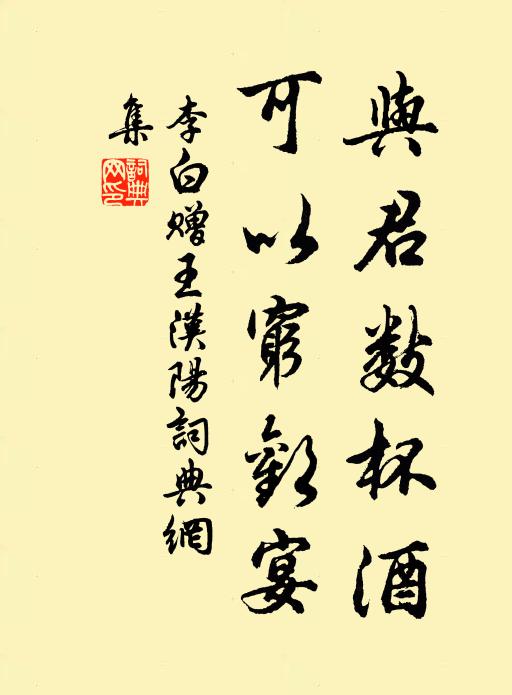 與君數杯酒
可以窮歡宴
李白贈王漢陽詞典網
集
詞典網印